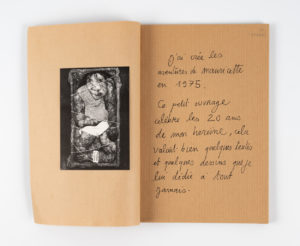 J'ai créé les
aventures de Mauricette
en 1975.
Ce petit ouvrage
célèbre les 20 ans
de mon héroïne, cela
valait bien quelques textes
et quelques dessins que je
lui dédie à tout
jamais.